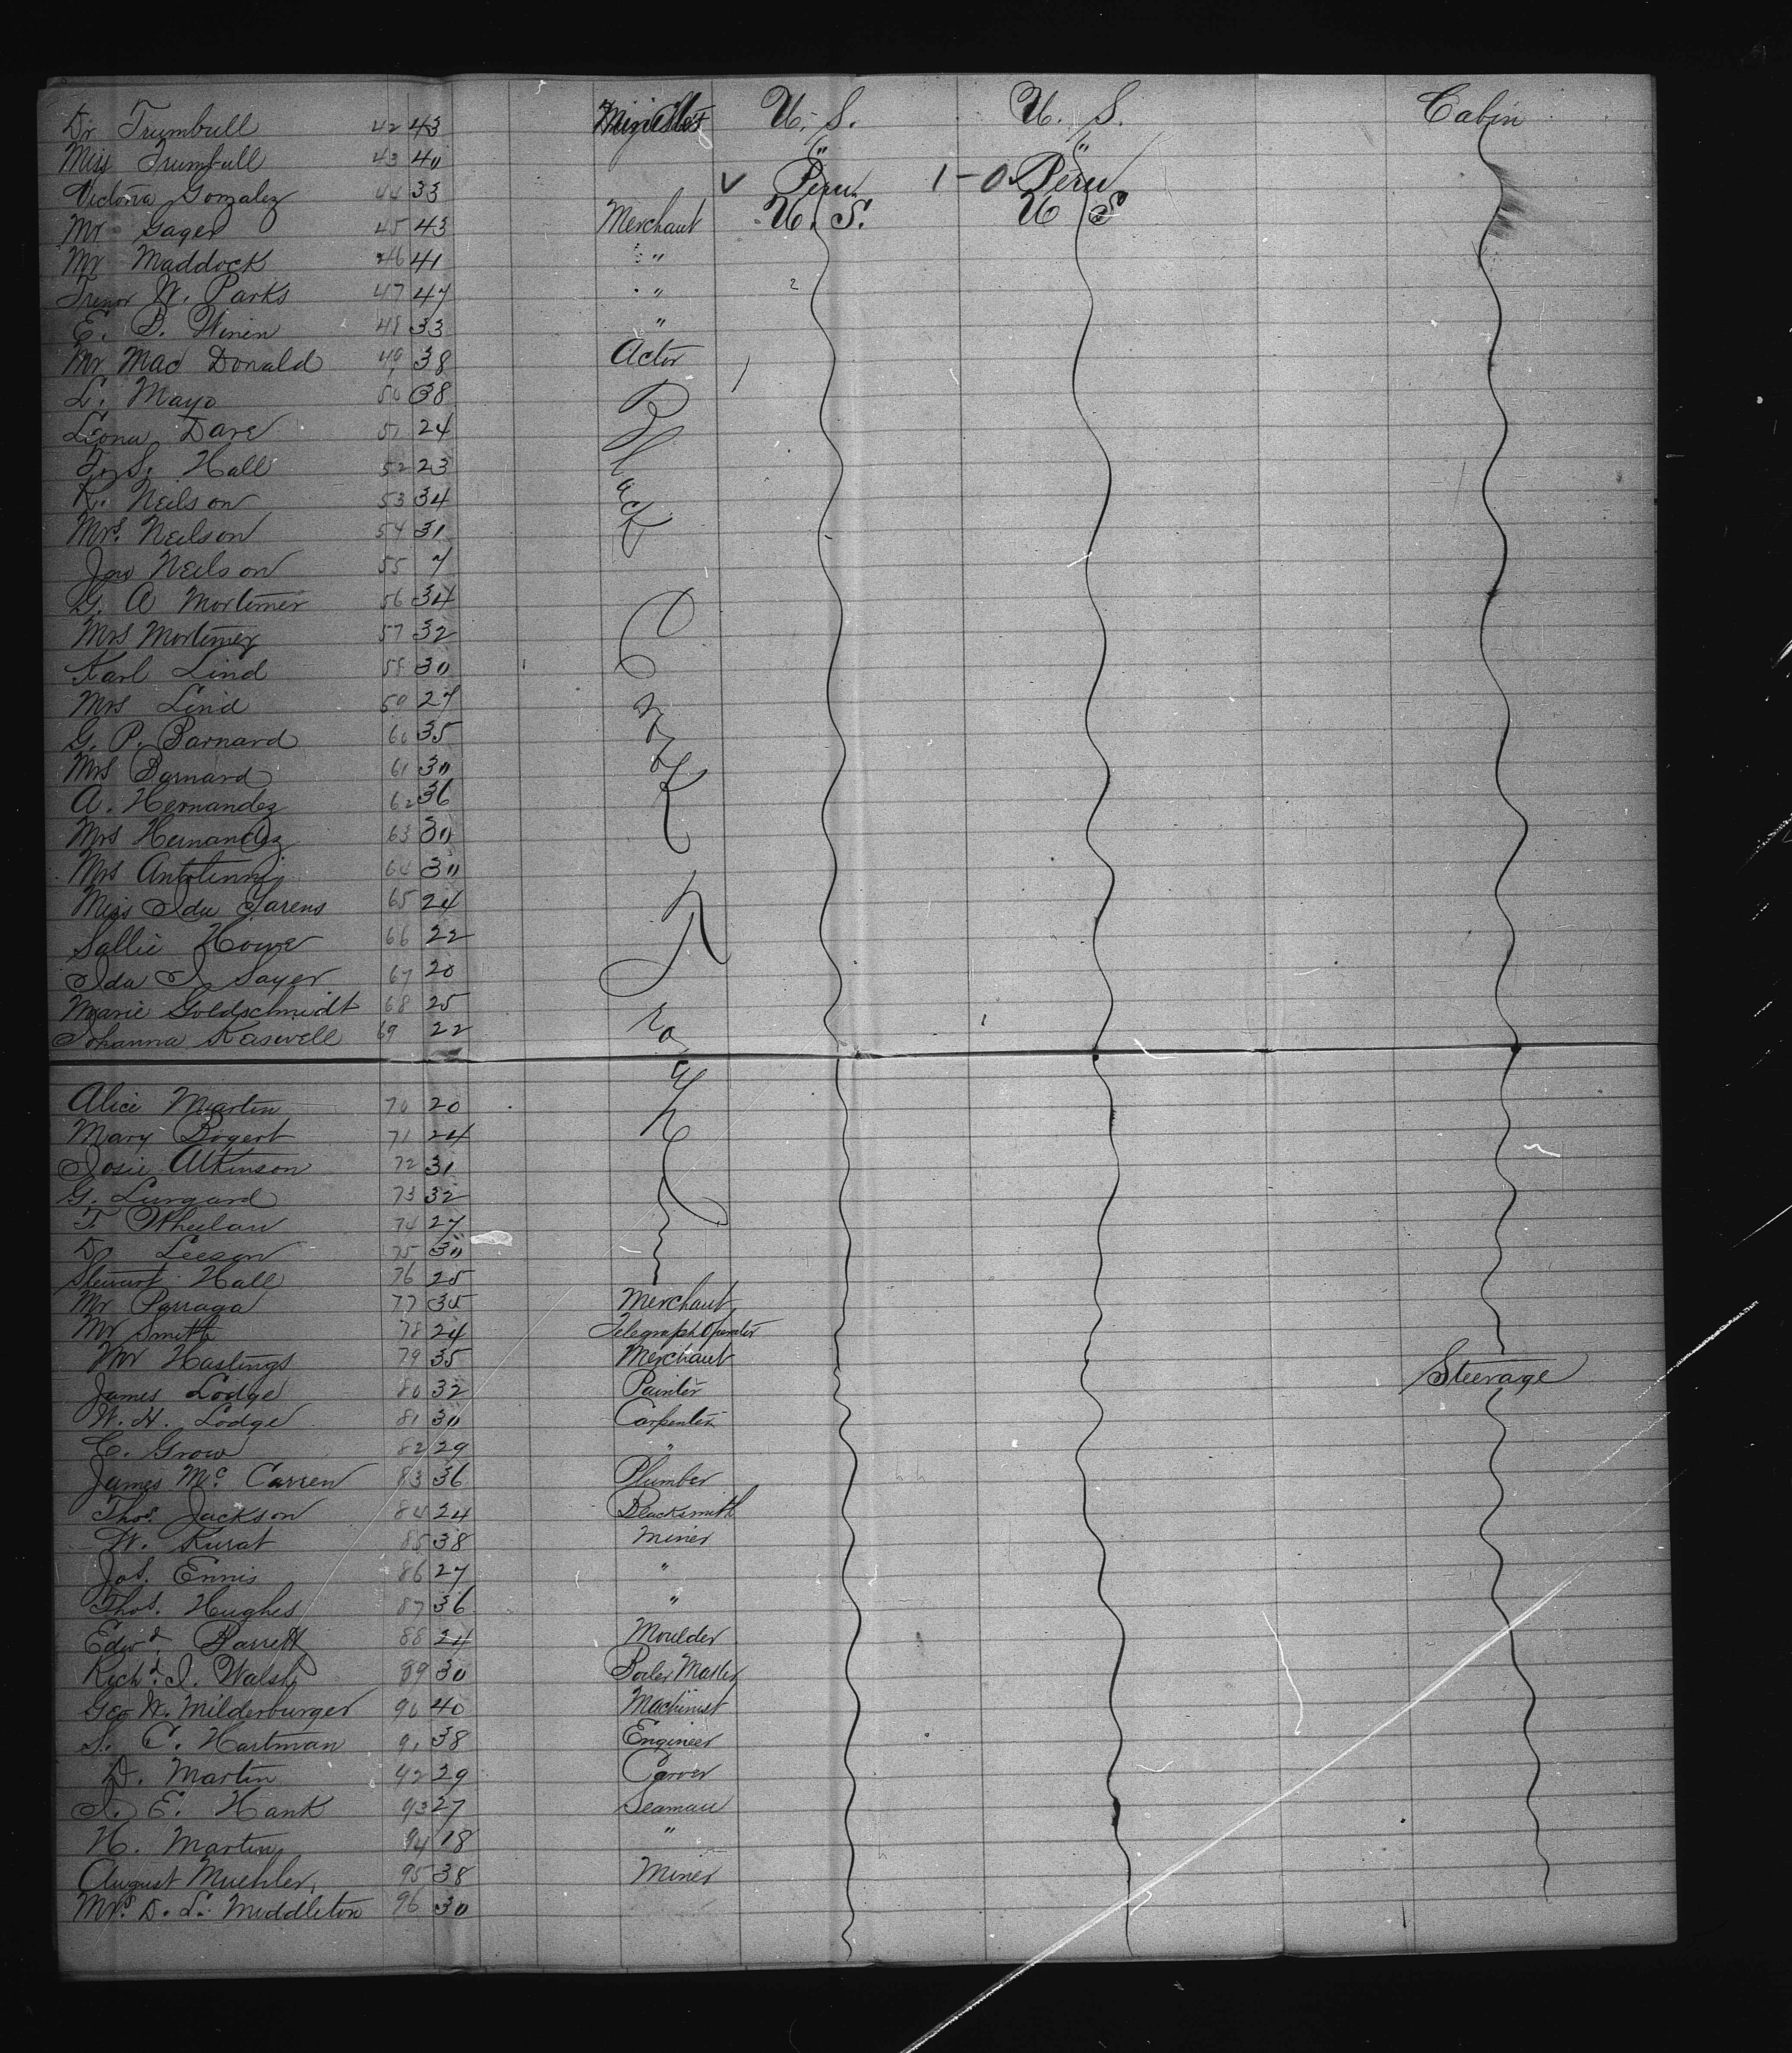 Dr Trumbull 42 43 Minister U. S. U. S. Cabin
Miss Trumbull 43 40 " "
Victoria Gonzalez 44 33 Peru 1-0 Peru
Mr Gager 45 43 Merchant U. S. U S
Mr Maddock 46 41 "
Trenor W. Parks 47 47 "
E. B. Winin 48 33 "
Mr Mac Donald 49 38 Actor
L. Mayo 50 38 Black
Leona Dare 51 24
T. S. Hall 52 23
R. Neilson 53 34
Mrs. Neilson 54 31
Jno Neilson 55 7
G. A Mortimer 56 34 Crook
Mrs Mortimer 57 32
Karl Lind 58 30
Mrs Lind 59 27
G. P. Barnard 60 35
Mrs Barnard 61 30
A. Hernandez 62 36
Mrs Hernandez 63 30
Mrs Antolinni 64 30
Miss Ida 65 24
Sallie Howe 66 22
Ida J Sayer 67 20
Marie Goldschmidt 68 25
Johanna Kaswell 69 22
Alice Martin 70 20
Mary Bogert 71 24
Josie Atkinson 72 31
G. Lurgard 73 32
F. Wheelan 74 27
D Leeson 75 30
Stewart Hall 76 25
Mr Parraga 77 35 Merchant
Mr Smith 78 24 Telegraph Operator
Mr Hastings 79 35 Merchant
James Lodge 80 32 Painter Steerage
W. H. Lodge 81 30 Carpenter
C. Grow 82 29 "
James Mc. Carren 83 36 Plumber
Thos. Jackson 84 24 Blacksmith
W. Kurat 85 38 Miner
Jos. Ennis 86 27 "
Thos. Hughes 87 36 "
Edwd Barrett 88 24 Moulder
Richd. J. Walsh 89 30 Boiler Maker
Geo W. Milderburger 90 40 Machinist
S. C. Hartman 91 38 Engineer
D. Martin 92 29 Carver
J. E. Hank 93 27 Seaman
H. Martin 94 18 "
August Muehler 95 38 Miner
Mrs. D. L. Middleton 96 30